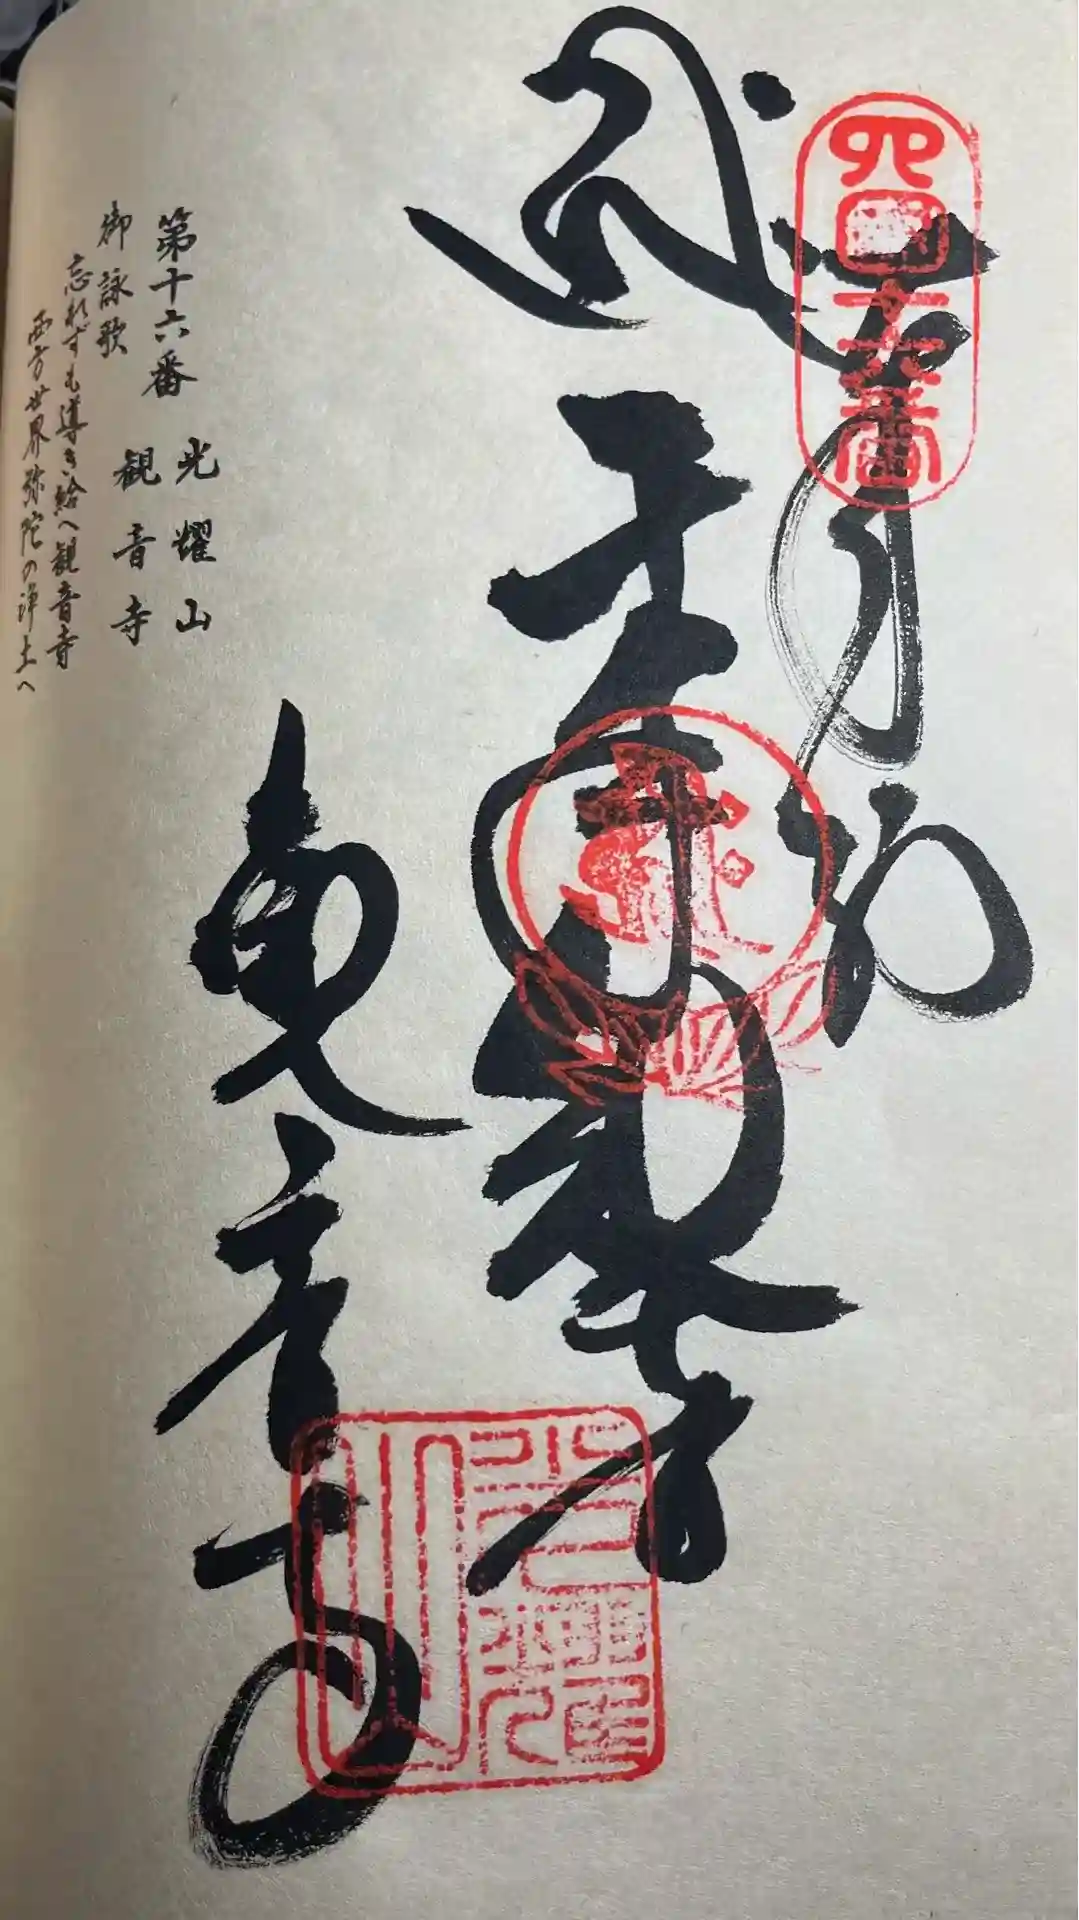 四国十六番
奉納
千手観世音
観音寺
光耀山
第十六番 光耀山
観音寺
御詠歌
忘れずも導き給へ観音寺
西方世界弥陀の浄土へ